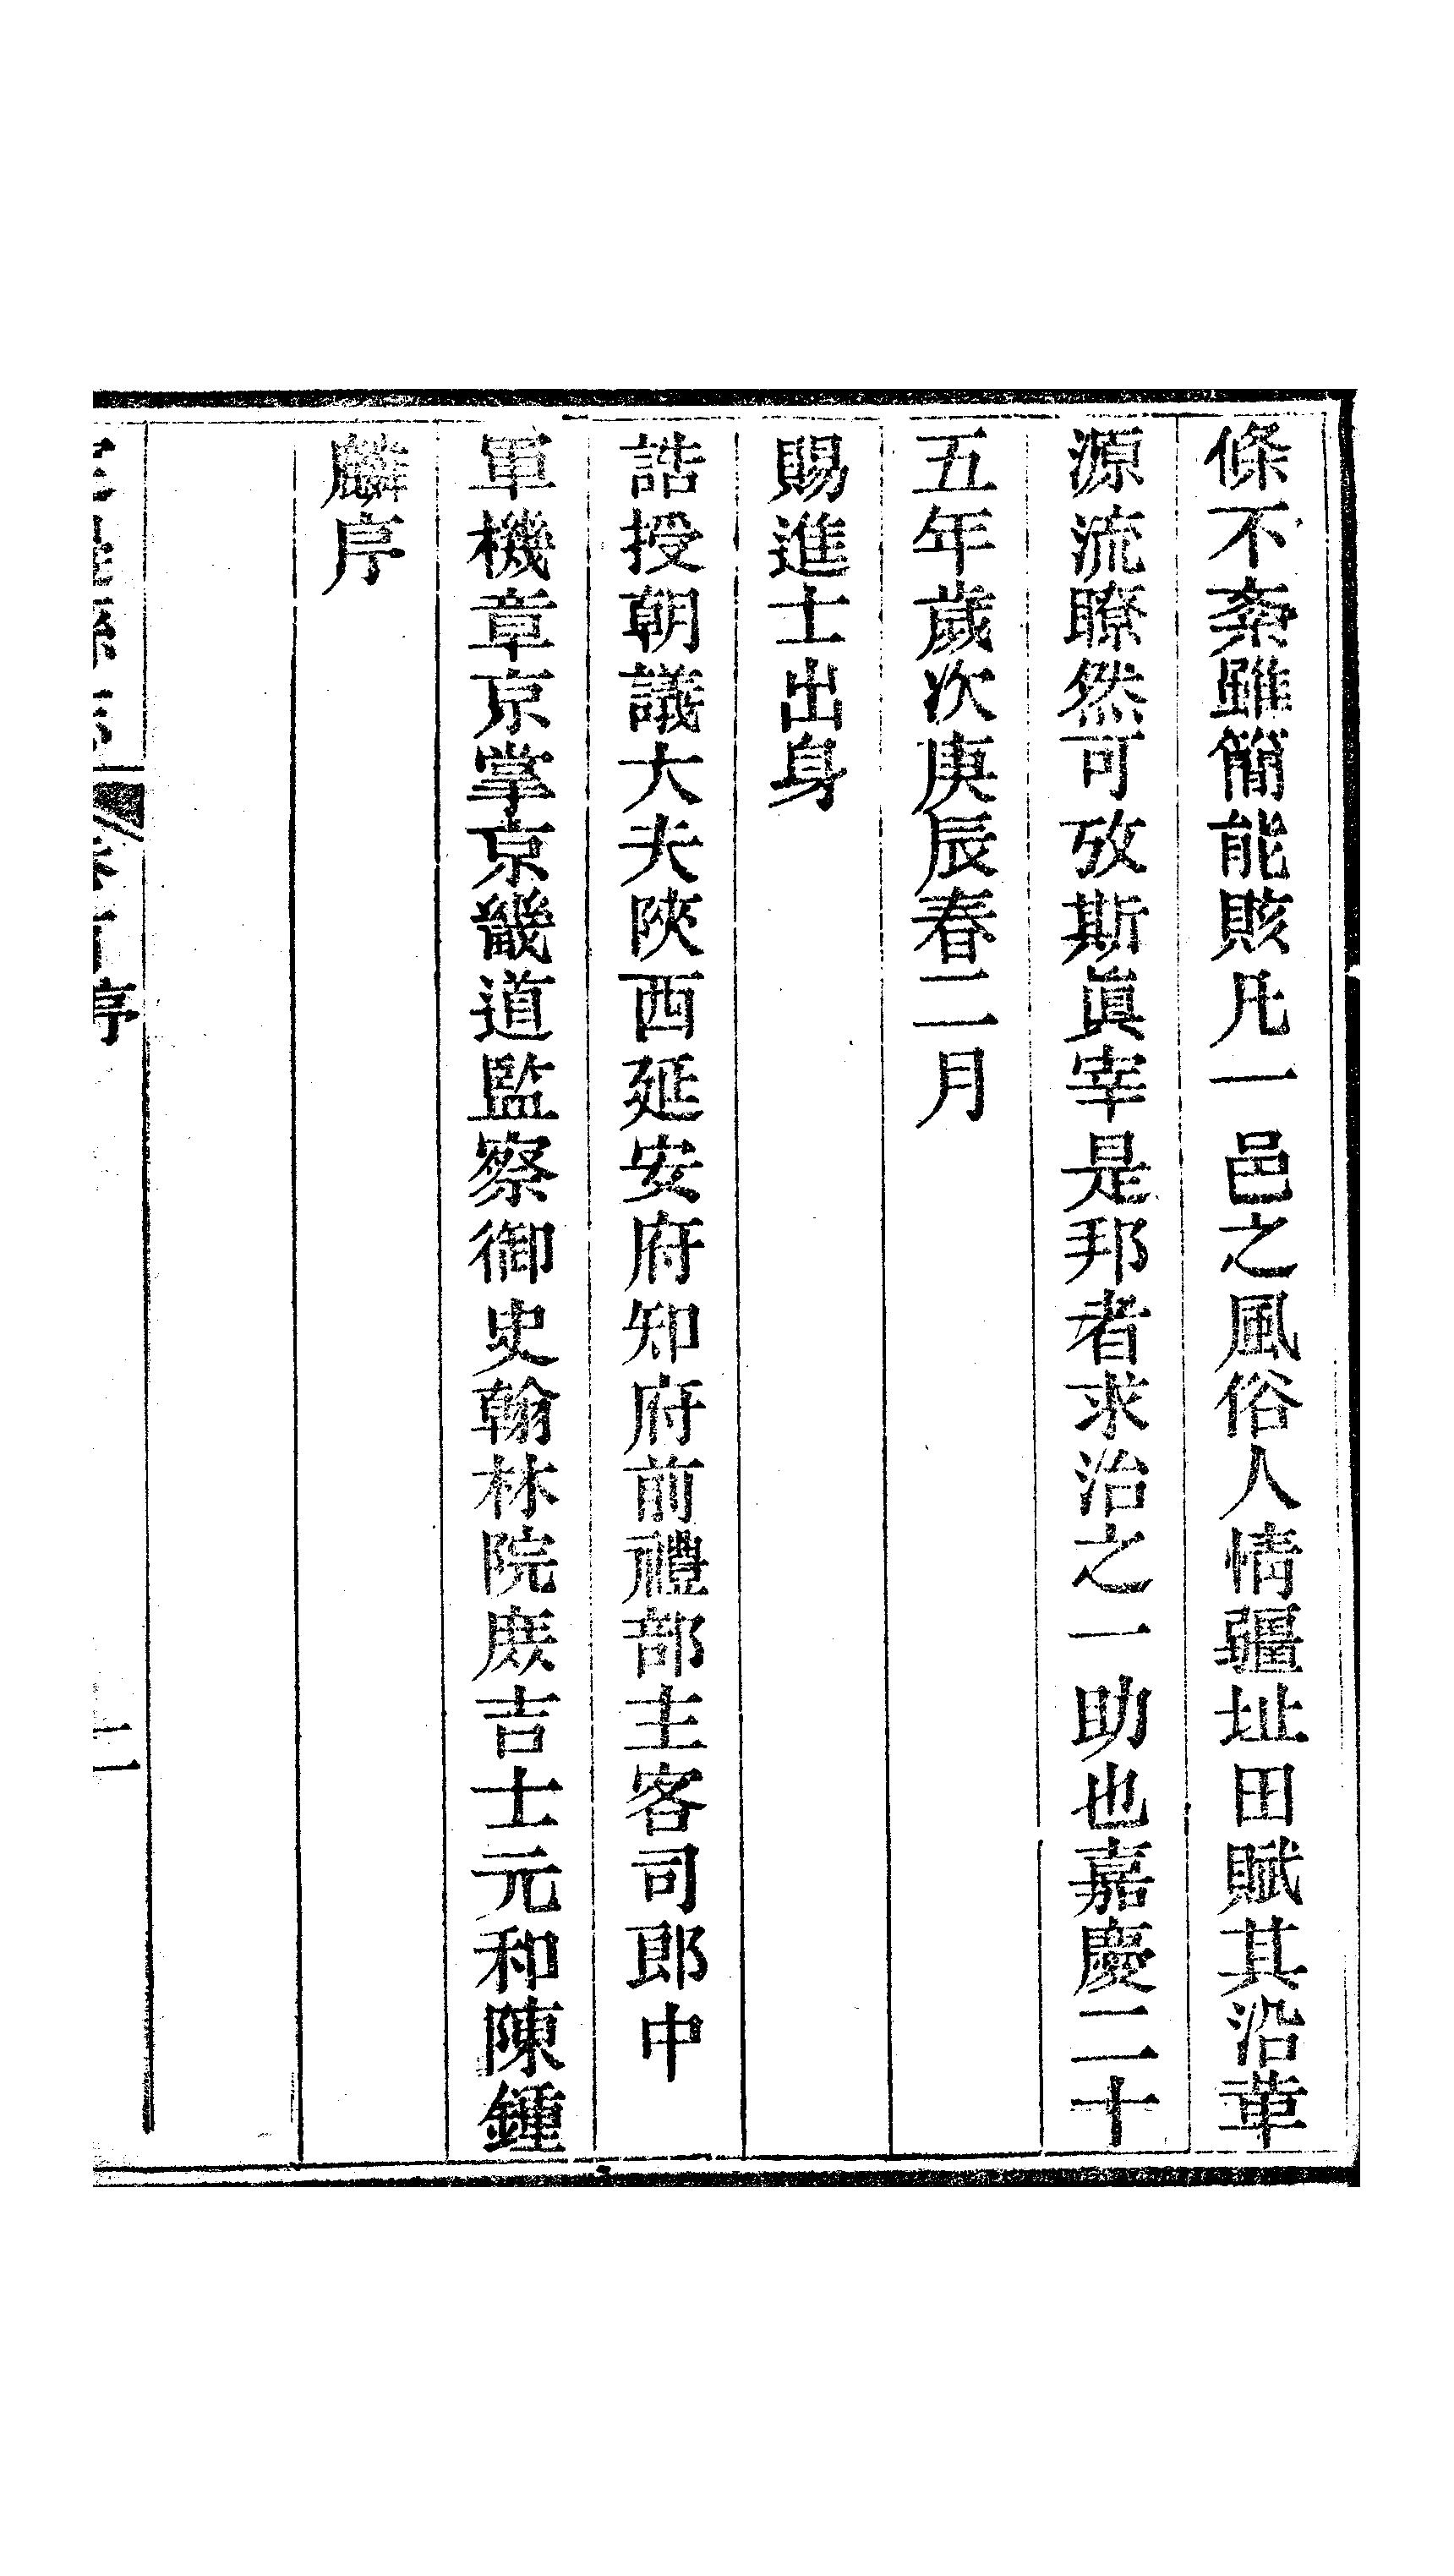 條不紊雖簡能賅凡一邑之風俗人情疆址田賦其沿革
源流瞭然可攷斯眞宰是邦者求治之一助也嘉慶二十
五年歲次庚辰春二月
賜進士出身
誥授朝議大夫陝西延安府知府前禮部主客司郎中
軍機章京掌京畿道監察御史翰林院庶吉士元和陳鍾
麟序
序
二